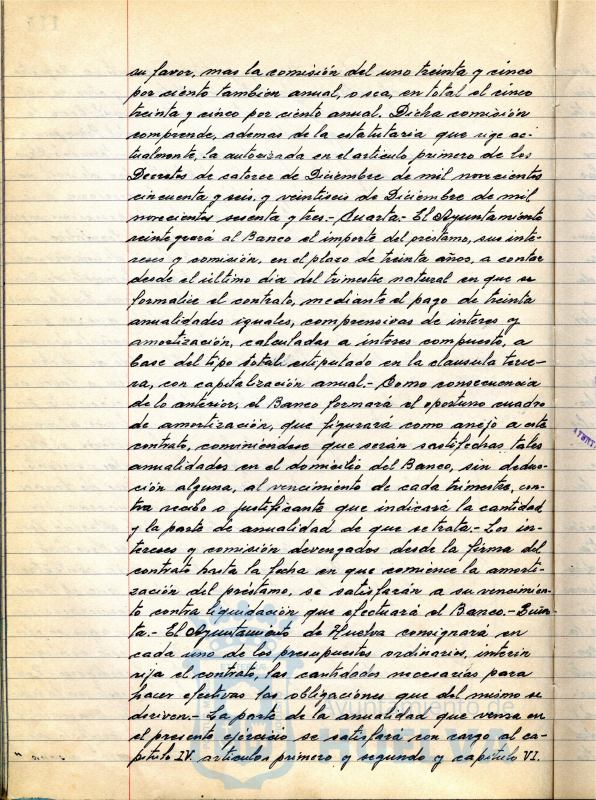 su favor, mas la comisión del uno treinta y cinco
por ciento tambien anual, o sea, en total el cinco
treinta y cinco por ciento anual. Dicha comisión
comprende, ademas de la estatutaria que rige ac-
tualmente, la autorizada en el articulo primero de los
Decretos de catorce de Diciembre de mil novecientos
cincuenta y seis, y veintiseis de Diciembre de mil
novecientos sesenta y tres.- Cuarta.- El Ayuntamiento
reintegrará al Banco el importe del préstamo, sus inte-
reses y comisión, en el plazo de treinta años, a contar
desde el último dia del trimestre natural en que se
formalice el contrato, mediante el pago de treinta
anualidades iguales, comprensivas de interes y
amortización, calculadas a interes compuesto, a
base del tipo total estipulado en la clausula terce-
ra, con capitalización anual.- Como consecuencia
de lo anterior, el Banco formará el oportuno cuadro
de amortización, que figurará como anejo a este
contrato, conviniendose que serán sastifechas tales
anualidades en el domicilio del Banco, sin deduc-
ción alguna, al vencimiento de cada trimestre, con-
tra recibo o justificante que indicará la cantidad
y la parte de anualidad de que se trata.- Los in-
tereses y comisión devengados desde la firma del
contrato hasta la fecha en que comience la amorti-
zación del préstamo, se satisfarán a su vencimien-
to contra liquidación que efectuará el Banco.- Quin-
ta.- El Ayuntamiento de Huelva consignará en
cada uno de los presupuestos ordinarios, interin
rija el contrato, las cantidades necesarias para
hacer efectivas las obligaciones que del mismo se
deriven.- La parte de la anualidad que venza en
el presente ejercicio se satisfará con cargo al ca-
pitulo IV articulos primero y segundo y capitulo VI.
Ayuntamiento de
HUELVA